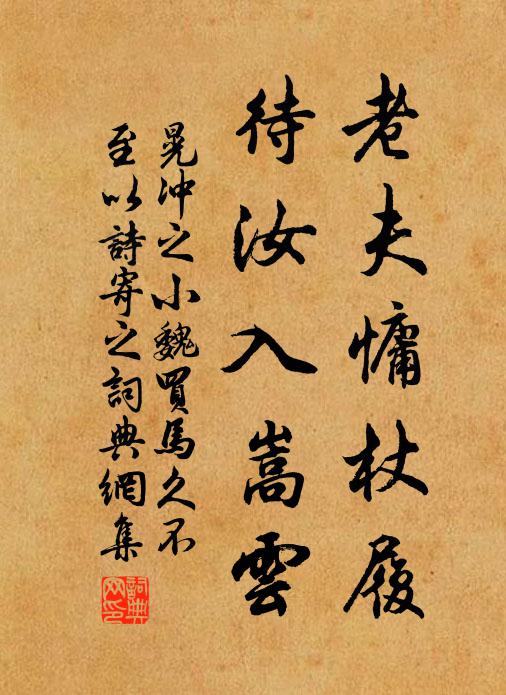 老夫慵杖履
待汝入嵩雲
晁沖之小魏買馬久不
至以詩寄之詞典網集
詞典
网印